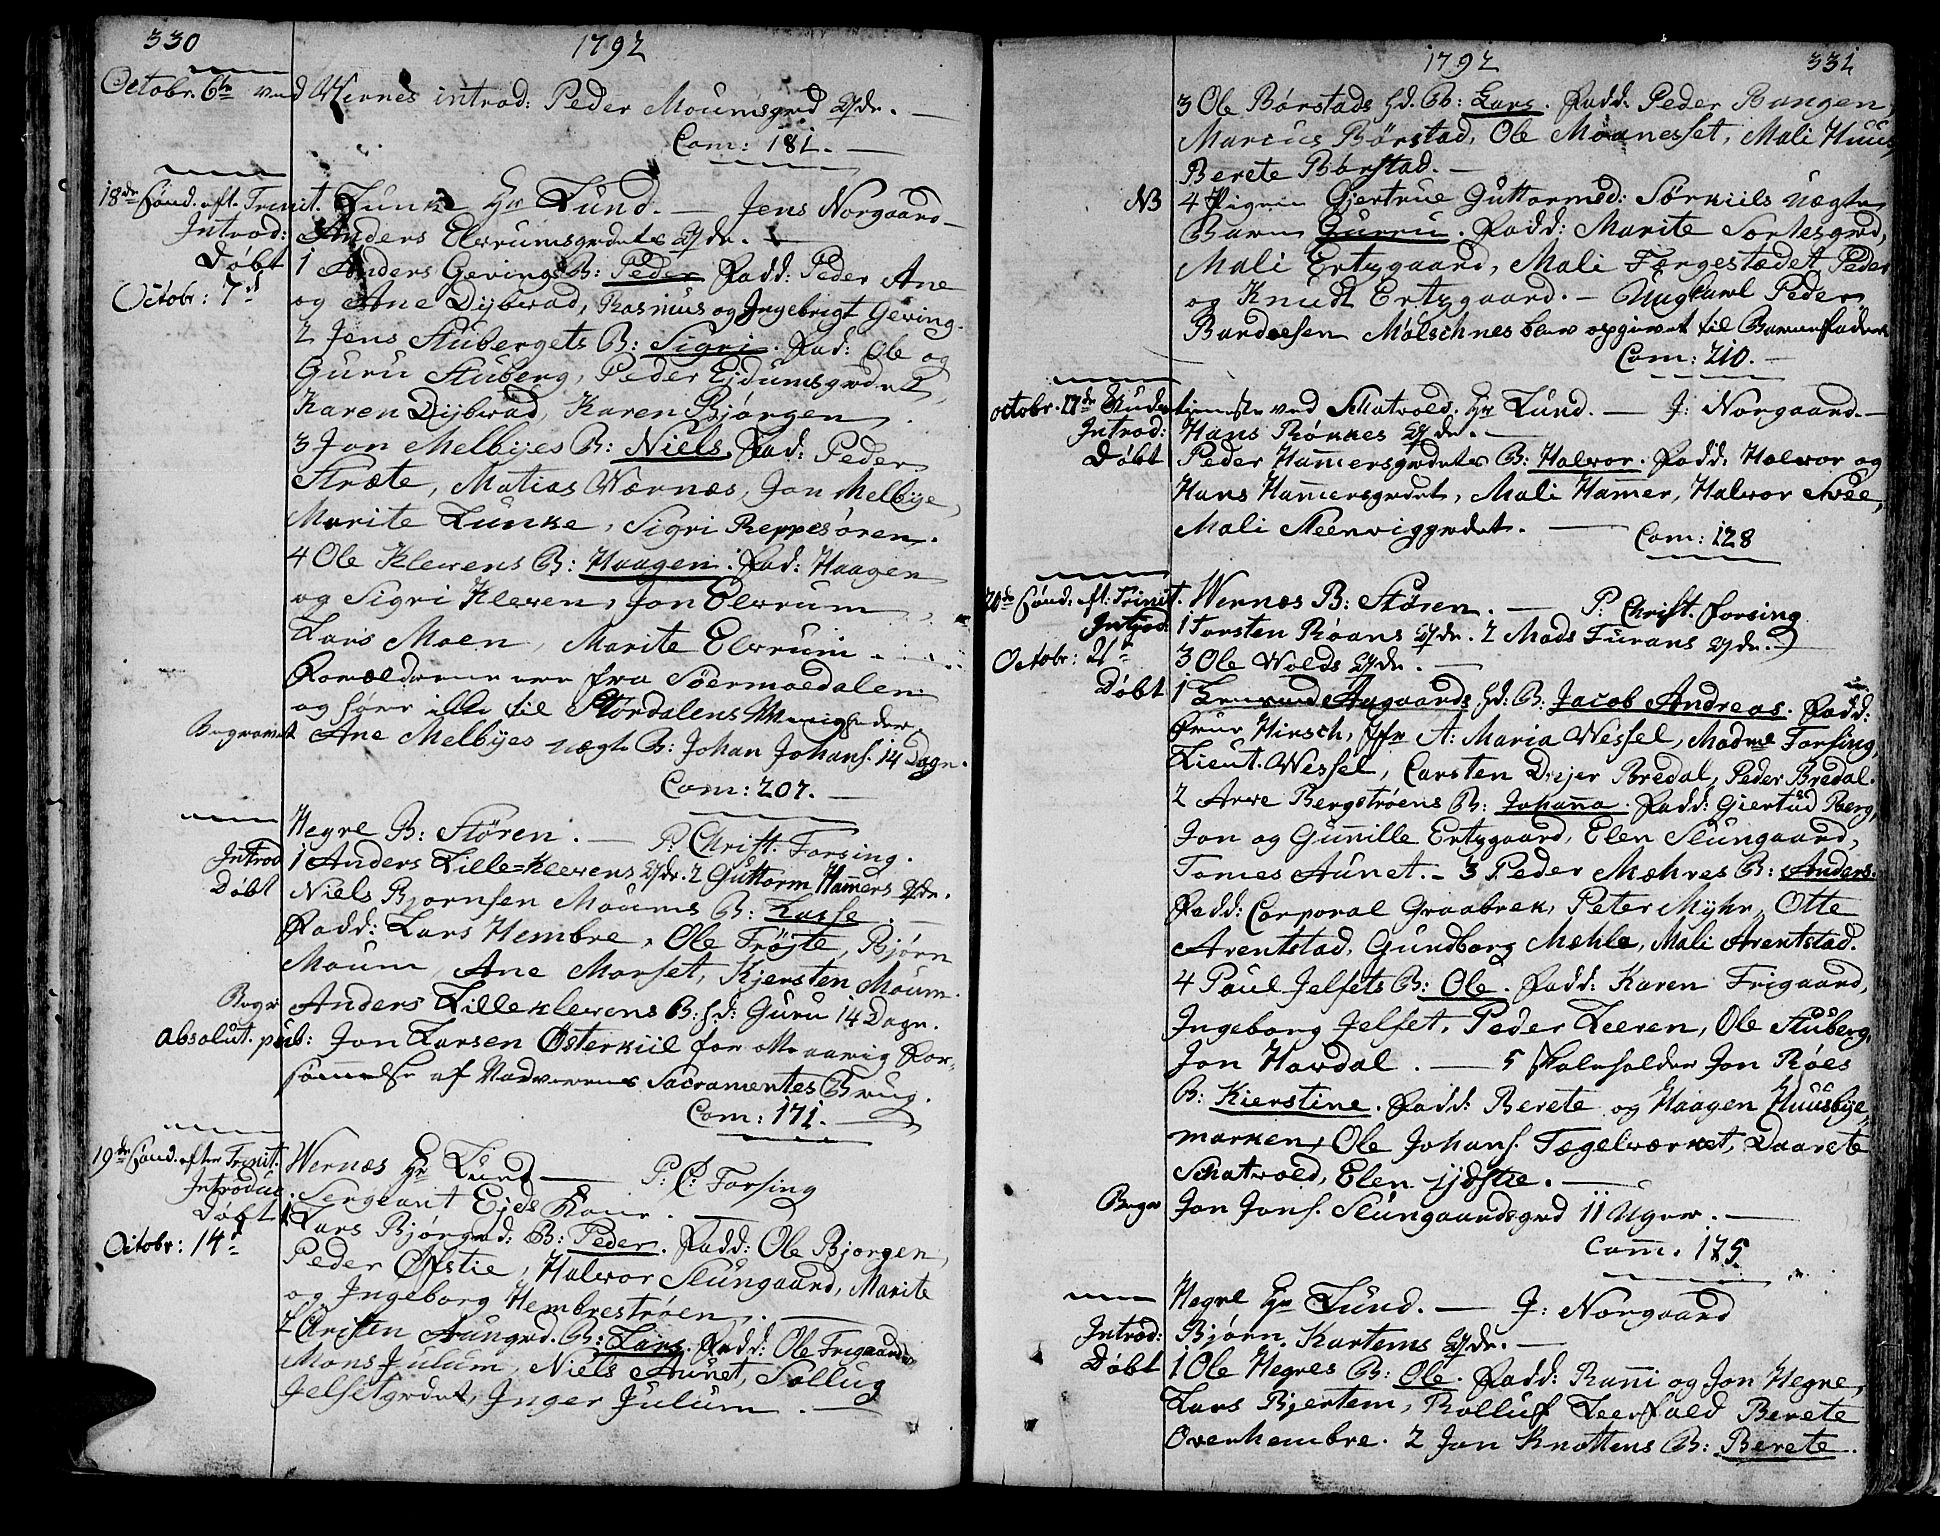 330
1792
Octobr. 6te ved Wernes introd: Peder Moumsgrd Qdr. —
Com: 181. —
18de Sønd. eft. Trinit. Lunke Hr Lund. — Jens Norgaard —
Introd: Anders Elvrumsgrdets Qdr. —
Døbt 1 Anders Gevings B: Peder Fadd: Peder Ane
Octobr: 7d
og Ane Dybvad, Rasmus og Ingebrigt Geving.
2 Jens Stubergets B: Sigri. Fad: Ole og
Guru Stuberg, Peder Ejdumsgrdet,
Karen Dybvad, Karen Bjørgen.
3 Jon Melbyes B: Niels. Fad: Peder
Stræte, Matias Wærnæs, Jon Melbye,
Marite Lunke, Sigri Reppesøren.
4 Ole Klevens B: Haagen. Fad: Haagen
og Sigri Kleven, Jon Elvrum,
Lars Moen, Marite Elvrum.
Forældrene ere fra Søermoedalen
og hører ikke til Størdalens Menigheder.
Begravet Ane Melbyes uægte B: Johan Johans. 14 Dage.
Com: 207. —
Hegre B: Støren. — P: Christ: Forsing.
Introd 1 Anders Lille=klevens Qdr. 2 Guttorm Hamers Qdr.
Døbt Niels Bjornsen Moums B: Lasse. —
Fadd: Lars Hembre, Ole Trøjte, Bjørn
Moum, Ane Morset, Kjersten Moum.
Begr Anders Lilleklevens B: hd: Guru 14 Dage.
Absolut. pub: Jon Larsen Østerkiil for otte aarig For-
sømmelse af Nadverens Sacramentes Brug.
Com: 171. —
19de Sønd. efter Trinit. Wernæs Hr Lund — P: C: Forsing
Introduc. Sergeant Ejds Kone. —
Døbt 1 Lars Bjørgrd: B: Peder. Fadd: Ole Bjorgen,
Octobr: 14d
Peder Øfstie, Halvor Slungaard, Marite
og Ingeborg Hembrestrøen. —
2 Christen Aungrd. B: Lars. Fadd: Ole Frigaard,
Mons Julum, Niels Aunet, Sollug
Jelsetgrdet, Inger Julum. —
1792
331
3 Ole Børstads hd. B: Lars. Fadd: Peder Bangen,
Marcus Børstad, Ole Moanesset, Mali Huus,
Berete Børstad. —
NB 4 Pigen Gjertrue Guttormsd: Sørkiils uægte
Barn Guru. Fadd: Marite Sortesgrd,
Mali Ertzgaard, Mali Fergestædet Peder
og Knudt Ertzgaard. — Ungkarl Peder
Bardoesen Mølschnes blev opgivet til Barnefader
Com: 210. —
octobr. 17de Gudstjeneste ved Schatvold. Hr Lund. — J: Norgaard. —
Introd: Hans Røkkes Qdr. —
Døbt Peder Hamersgrdets B: Halvor. Fadd: Halvor og
Hans Hamersgrdet, Mali Hamer, Halvor Svee,
Mali Steenviggrdet. — Com: 128
20de Sønd: eft: Trinit. Wernæs B: Støren. — P: Christ. Forsing
Introd: 1 Torsten Røans Qdr. 2 Mads Furans Qdr.
Octobr: 21d
3 Ole Wolds Qdr. —
Døbt 1 Aagaards hd: B: Jacob Andreas. Fadd:
Frue Hirsch, Jfr A: Maria Wessel, Madme Forsing,
Lieut. Wessel, Carsten Drejer Bredal, Peder Bredal.
2 Arve Bergstrøens B: Johanna. Fadd: Giertud Berg,
Jon og Gunille Ertzgaard, Elen Slungaard,
Tomes Aunet. — 3 Peder Mæhres B: Anders.
Fadd: Corporal Graabrek, Peter Myhr, Otte
Arentstad, Gundborg Mæhle, Mali Arentstad.
4 Paul Jelsets B: Ole. Fadd: Karen Frigaard,
Ingeborg Jelset, Peder Leeren, Ole Stuberg,
Jon Hardal. — 5 Skoleholder Jon Røes
B: Kierstine. Fadd: Berete og Haagen Huusbye-
marken, Ole Johans. Tægelværket, Daarete
Schatvold, Elen Ydstie. —
Begr Jon Jons. Slungaardsgrd 11 Uger. —
Com. 175.
Hegre Hr Lund. — J: Norgaard
Introd: Bjørn Kartems Qdr. —
Døbt 1 Ole Hegres B: Ole. Fadd: Ranni og Jon Hegre,
Lars Bjertem, Rolluf Leerfald Berete
Overhembre. 2 Jon Knottens B: Berete.